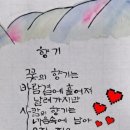 향기
꽃의 향기는
바람결에 흩어져
날려가지만
사람의 향기는
가슴속에 남아